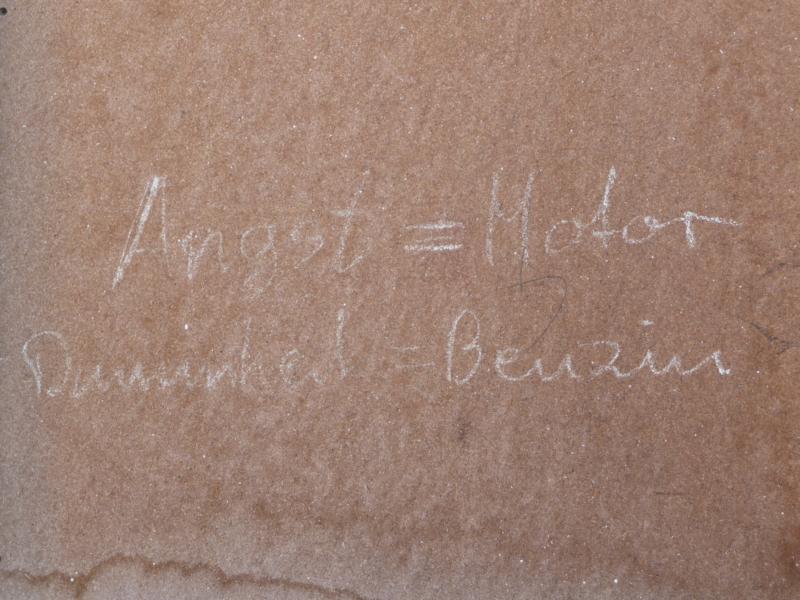 Angst = Motor
Dummheit = Benzin